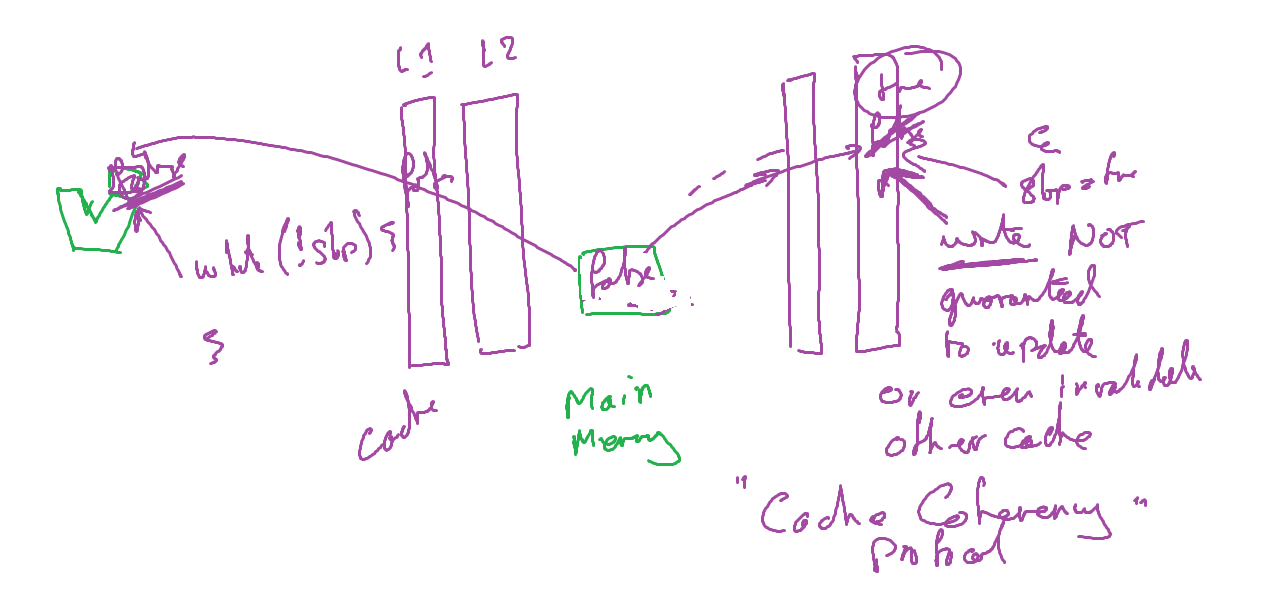 L1 L2
false
while (!stop) {
}
false
Cache
false
Main
Memory
true
stop = true
write NOT
guaranteed
to update
or even invalidate
other cache
"Cache Coherency"
protocol